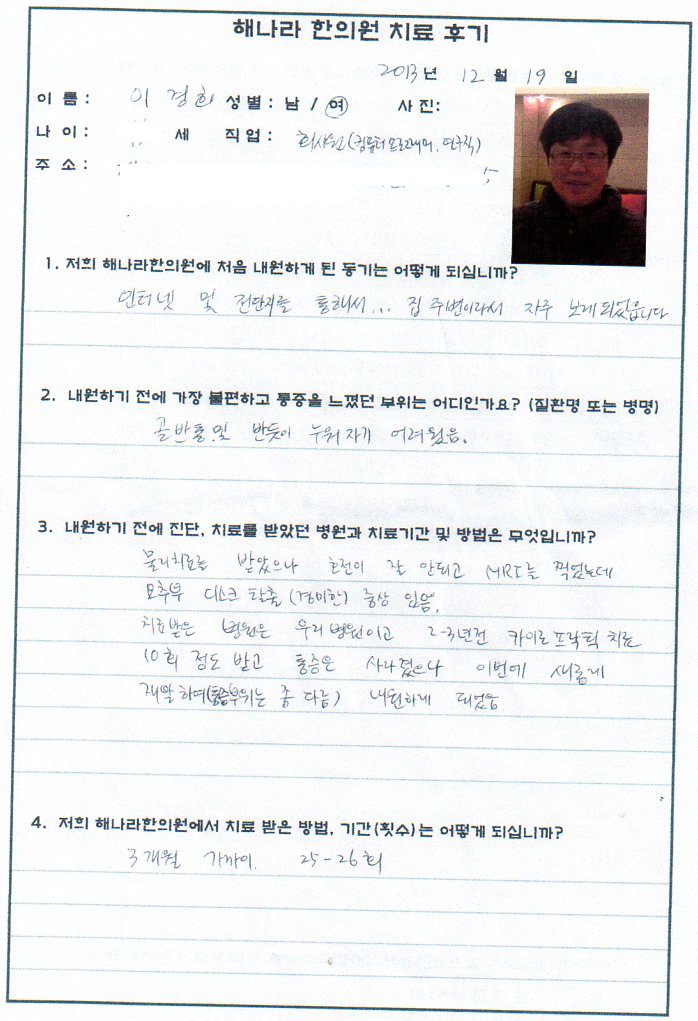 해나라 한의원 치료 후기
2013년 12월 19일
이름: 이경희 성별: 남 / 여 사진:
나이: 세 직업: 회사원(컴퓨터프로그래머, 연구직)
주소:
1. 저희 해나라한의원에 처음 내원하게 된 동기는 어떻게 되십니까?
인터넷 및 전단지를 통해서... 집 주변이라서 자주 보게되었습니다
2. 내원하기 전에 가장 불편하고 통증을 느꼈던 부위는 어디인가요? (질환명 또는 병명)
골반통 및 반듯이 누워자기 어려웠음.
3. 내원하기 전에 진단, 치료를 받았던 병원과 치료기간 및 방법은 무엇입니까?
물리치료를 받았으나 호전이 잘 안되고 MRI를 찍었는데
요추부 디스크 탈출 (경미한) 증상 있음.
치료받은 병원은 우리병원이고 2-3년전 카이로프락틱 치료
10회 정도 받고 통증은 사라졌으나 이번에 새롭게
재발하여(통증부위는 좀 다름) 내원하게 되었음
4. 저희 해나라한의원에서 치료 받은 방법, 기간(횟수)는 어떻게 되십니까?
3개월 가까이. 25-26회